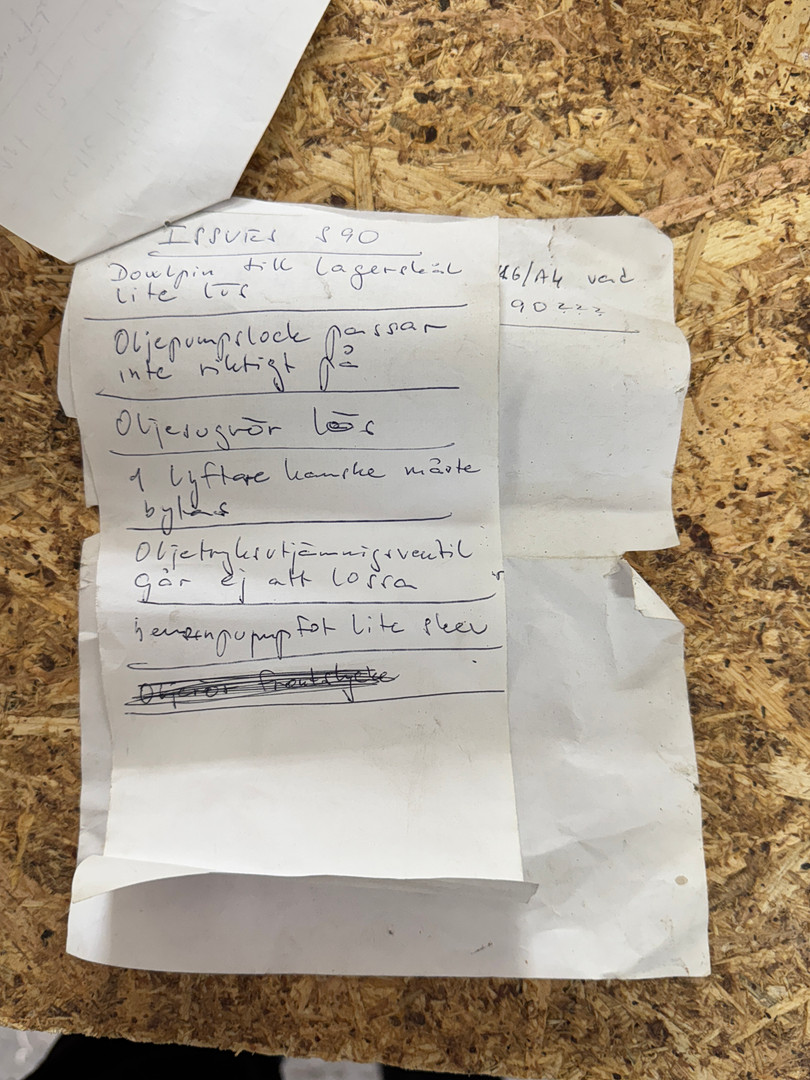 ISSUES S90
Dowlpin till lagerskål
lite lös
Oljepumpslock passar
inte riktigt på
Oljesugrör lös
1 lyftare kanske måste
bytas
Oljetryksutjämnigsventil
går ej att lossa
bensinpumpfot lite skev
Oljerör framstycke
16/A4 vad
90???